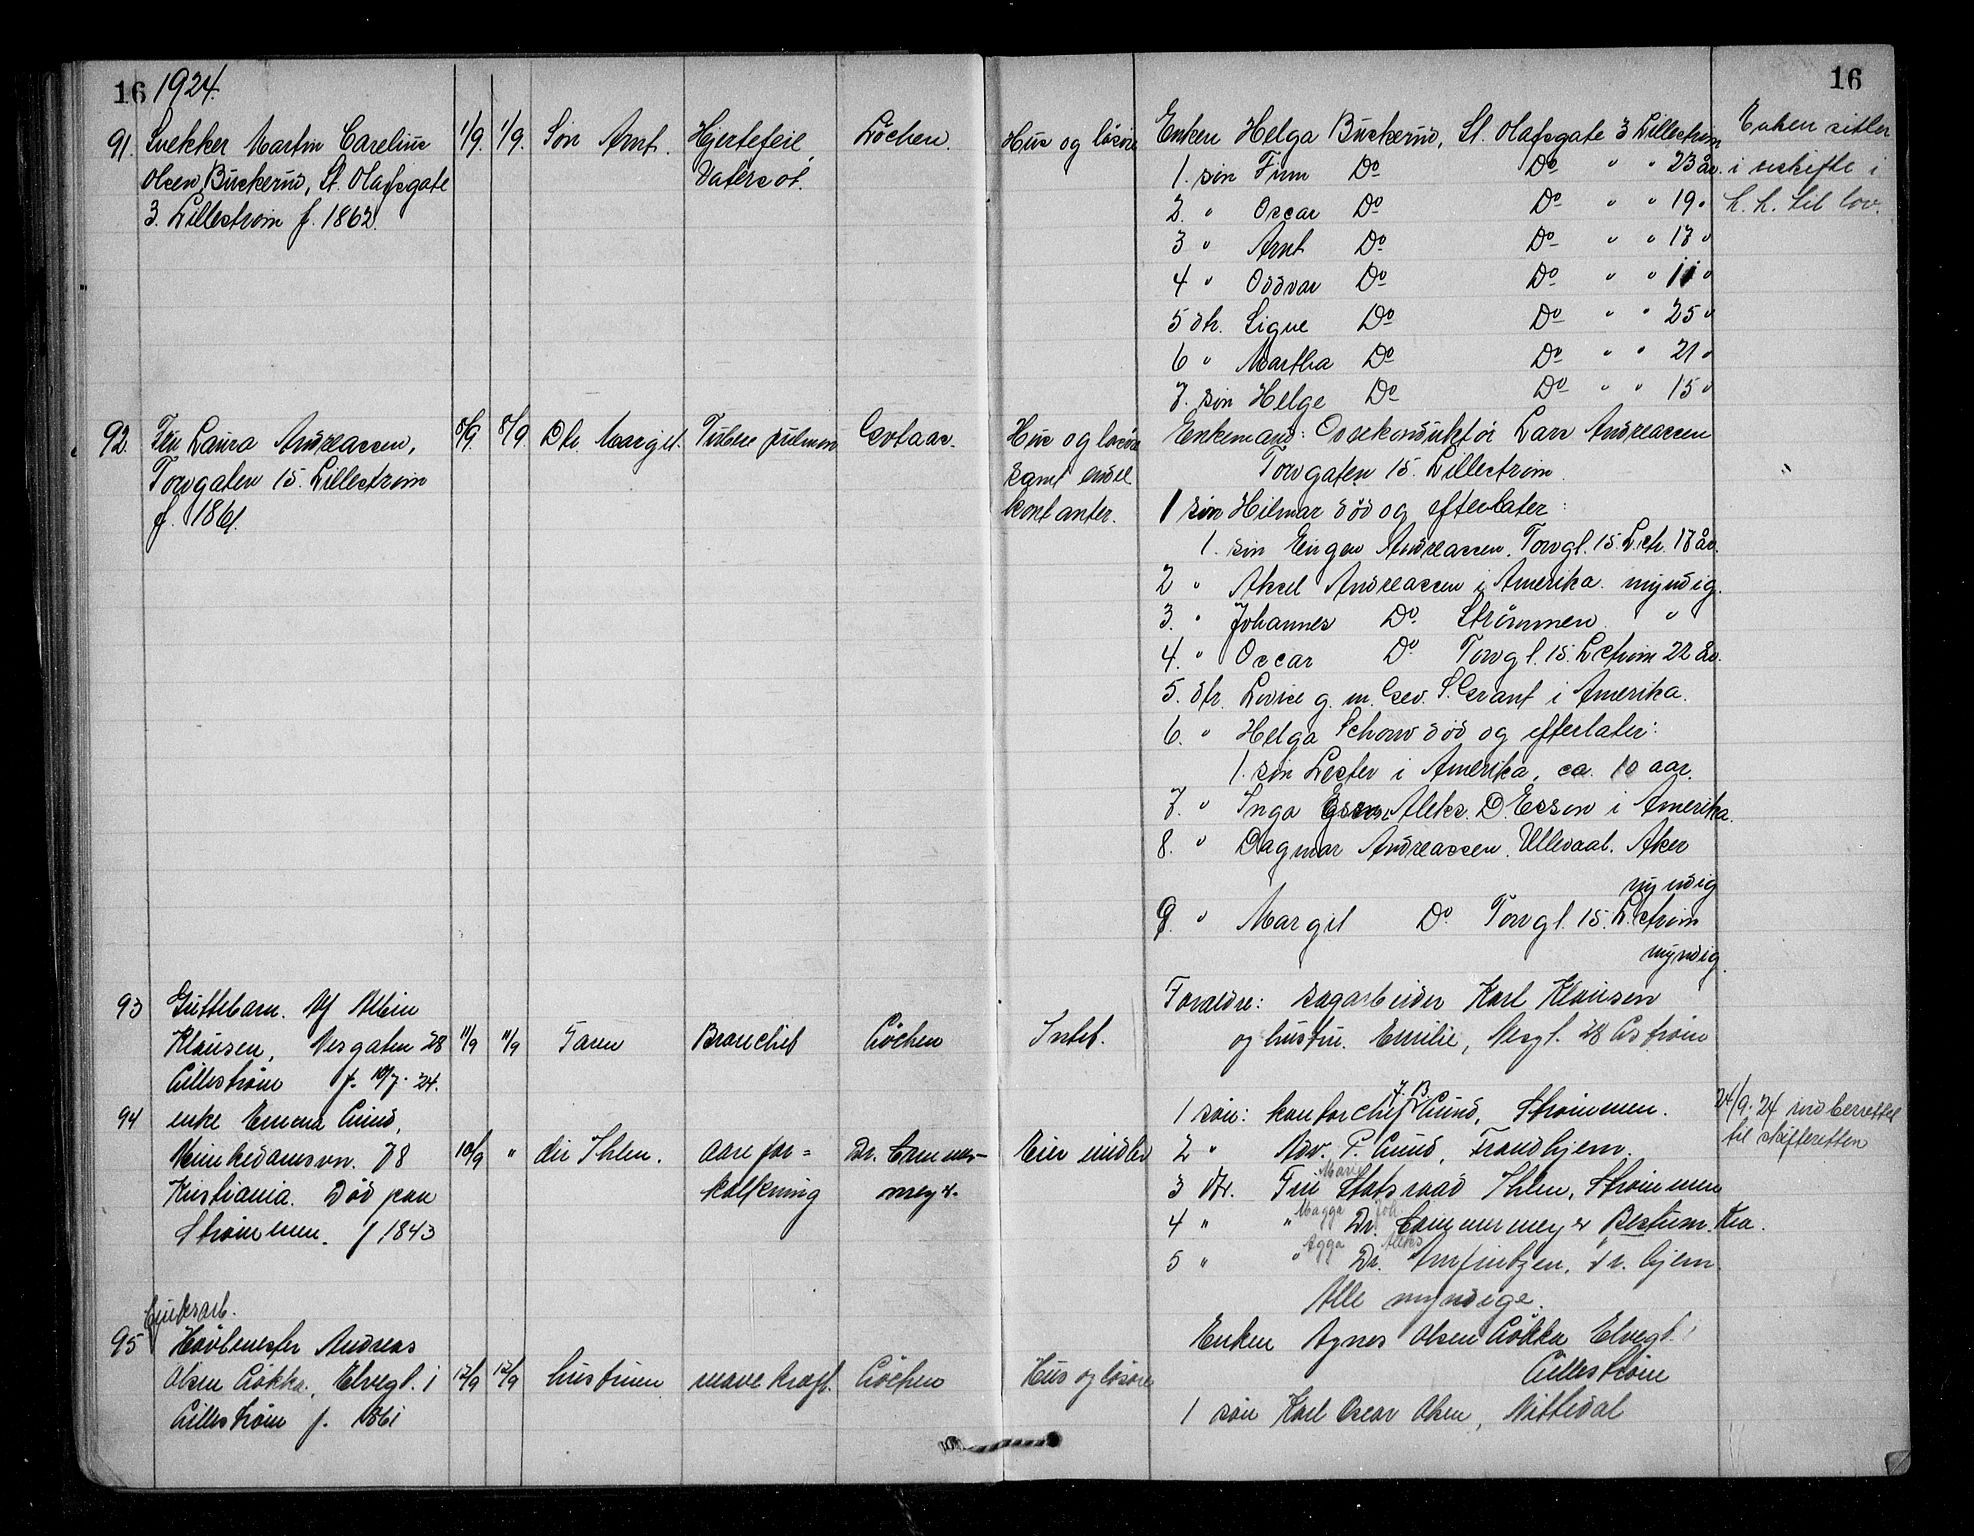 16 1924.
16
91. Snekker Martin Carelius
Olsen Buskerud, St. Olafsgate
3. Lillestrøm f. 1862.
1/9. 1/9. Søn Arnt. Hjertefeil Vatersot. Løchen. Hus og løsøre
Enken Helga Buskerud, St. Olafsgate 3 Lillestrøm
1. søn Finn Do Do " " 23 år.
2. " Oscar Do Do " " 19 "
3 " Arnt Do Do " " 17 "
4 " Oddvar Do Do " " 11 "
5 dtr. Signe Do Do " " 25 "
6 " Martha Do Do " " 21 "
7. søn Helge Do Do " " 15 "
Enken sitter
i uskifte i
h. h. til lov.
92. Fru Laura Andreassen,
Torvgaten 15. Lillestrøm
f. 1861.
8/9. 8/9. Dtr. Margit. Tuberc pulmon
Hus og løsøre
samt endel
kontanter.
Enkemand: Ovsekonduktør Lars Andreassen
Torvgaten 15. Lillestrøm.
1 søn Hilmar död og efterlater:
1. søn Eugen Andreassen. Torvgt. 15. L.str. 17 år.
2 " Aksel Andreassen i Amerika. myndig.
3. " Johannes Do Strømmen. "
4. " Oscar Do Torvgt. 15. Lstrøm 22 år.
5. dtr. Lovise g. m. Geo. S. Grant i Amerika.
6. " Helga Schow död og efterlater:
1. søn Lester i Amerika, ca. 10 aar.
7 " Inga Aleks. D. Esson i Amerika.
8. " Dagmar Andreassen. Ullevaal. Aker
myndig
9. " Margit Do Torvgt. 15. L.strøm
myndig.
93 Guttebarn. Alf Albin
Klausen, Nesgaten 28
Lillestrøm f. 10/7. 24.
11/9 11/9 Faren Bronchit Løchen Intet.
Forældre: sagarbeider Karl Klausen
og hustru. Emilie, Nesgt. 28 Lstrøm
94 enke Emma Lund,
Munkedamsvn. 78
Kristiania. Død paa
Strømmen. f 1843
10/9 " dir Ihlen. aarefor=
kalkning Dr. Cammer-
meyer. Eier indbo
1 søn: kontorchef J. B. Lund, Strømmen.
2 " Adv. P. Lund, Trondhjem.
3 dtr. Fru Marie Statsraad Ihlen, Strømmen
4 " " Magga Joh. Dr. Cammermeyer Bestum. Kra.
5 " " Agga Aleks Dr. Arnfindsen, Tr. hjem.
Alle myndige.
24/9.24 indberettet
til skifteretten
95 Enkesarb.
Høvlemester Andreas
Olsen Løkka, Elvegt. 1
Lillestrøm f. 1861
12/9 12/9 hustruen mavekræft. Løchen Hus og løsøre
Enken Agnes Olsen Løkka Elvegt. 1
Lillestrøm
1 søn Karl Oscar Olsen, Nittedal